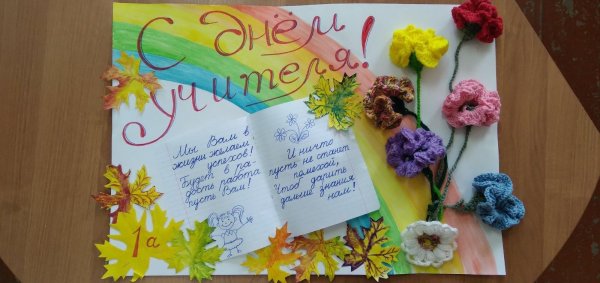 С Днём
учителя!
Мы Вам в
жизни желаем
успехов!
Будет в ра-
дость работа
пусть Вам!
И ничто
пусть не станет
помехой,
Чтоб дарить
дальше знания
нам!
1а